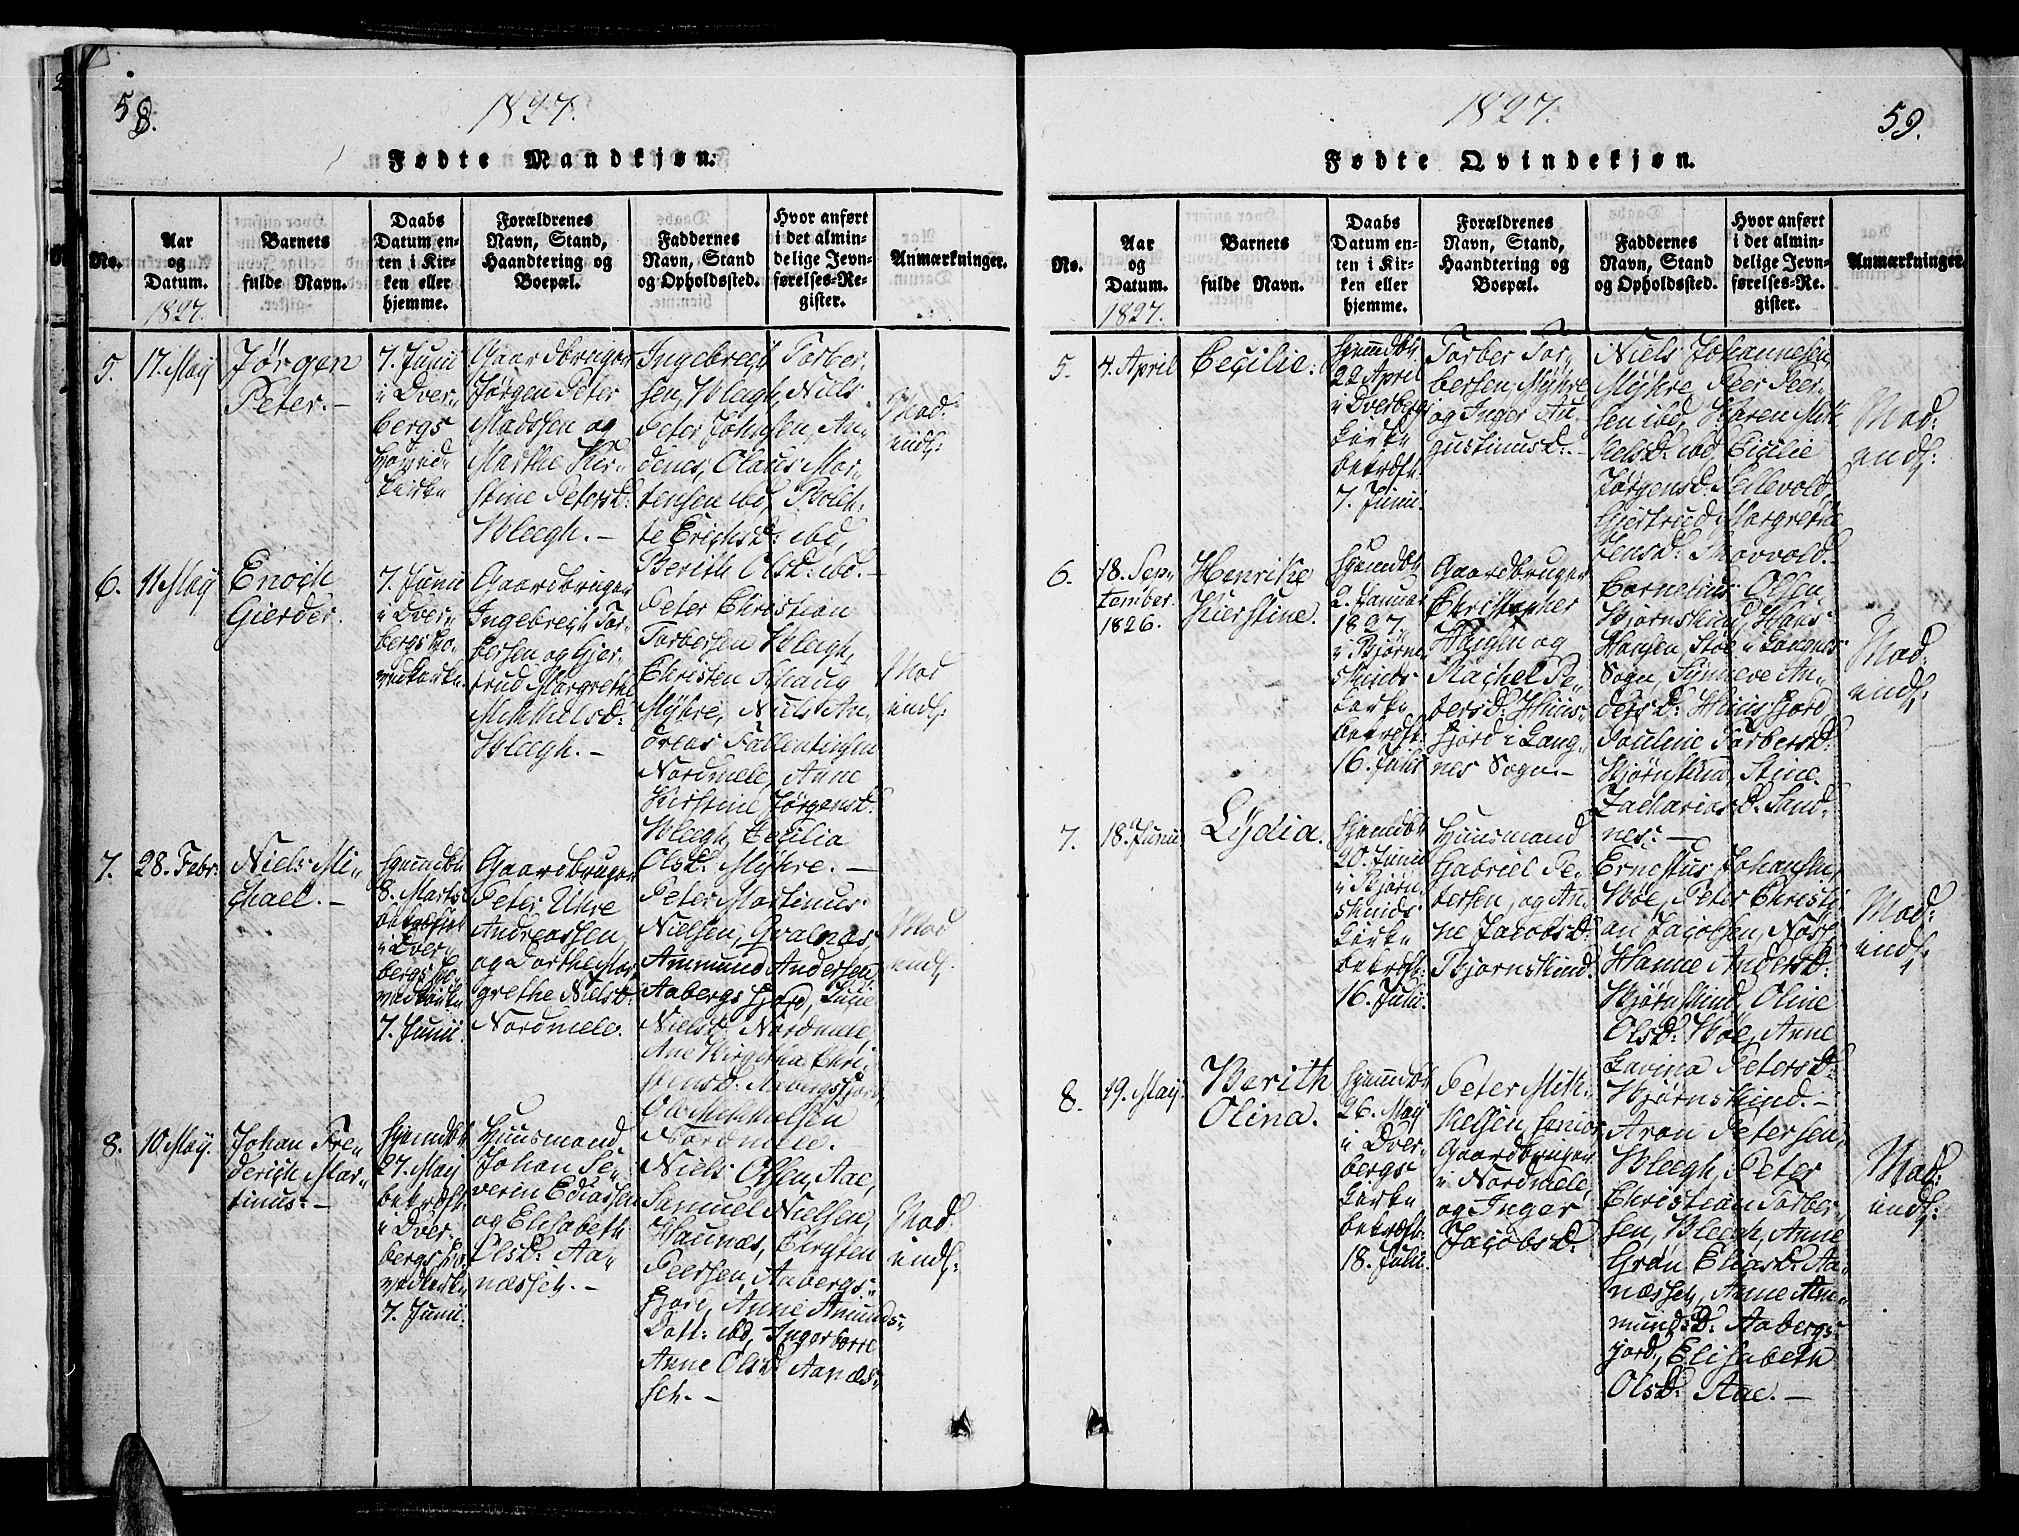 58.
1827.
Fødte Mandkjøn.
No.
Aar
og
Datum.
1827.
Barnets
fulde Navn.
Daabs
Datum en-
ten i Kir-
ken eller
hjemme.
Forældrenes
Navn, Stand,
Haandtering og
Boepæl.
Faddernes
Navn, Stand
og Opholdssted.
Hvor anført
i det almin-
delige Jevn-
førelses-Re-
gister.
Anmærkninger.
5.
17. May
Jørgen
Peter. –
7. Junii
i Dver-
bergs
Hoved
Kirke
Gaardbruger
Jørgen Peter
Madssen og
Marthe Kir-
stine Petersd:
Bleegh. –
Ingebregt Torber-
sen, Bleegh, Niels
Peter Johnsen, An-
denes, Olaus Mor-
tensen ibd,
te Erichsd: ibd,
Berith Olsd: ibd. –
Mod:
indf:
6.
11 May
Enoch
Gierder.
7. Junii
i Dver-
bergs Ho-
vedkirke.
Gaardbruger
Ingebregt Tor-
bersen og Gjer-
trud Margrethe
Mikkelsd:
Bleegh. –
Peter Christian
Torbersen Bleegh,
Christen
Myhre, Niels An-
dreas Fallentinsen
Nordmele, Anne
Kirstine Jørgensd:
Bleegh, Cecilia
Olsd: Myhre. –
Mod
indf:
7.
28. Febr:
Niels Mi-
chael. –
Hjemdbt
8. Marts
bekræftet
i Dver-
bergs Ho-
vedkirke
7. Junii
Gaardbruger
Peter Uhre
Andreassen
og Dorthe Mar
grethe Nielsd:
Nordmele.
Peter Martinus
Nielsen, Qvalnæs
Ammund Andersen
Aabergsfjord,
Nielsd: Nordmele,
Ane Birgitha Chri-
stensd: Aabergsfjord,
Ole Mikkelsen
Nordmele. –
Mod
indf:
8.
10 May.
Johan Fre-
derich Mar-
tinus: –
Hjemdbt.
27. May
bekræft:
i Dver-
bergs Ho-
vedkirke
7. Junii.
Huusmand
Johan Se-
verin Ediassen
og Elisabeth
Olsd: Aa-
næsset. –
Niels Olsen, Aae,
Samuel Nielsen,
Haunæs, Christen
Peersen, Aabergs-
fjord, Anne Amunds-
Datt: ibd, Ingerborre
Anne Olsd: Aanæs-
set. –
Mod:
indf:
1827.
59.
Fødte Qvindekjøn.
No.
Aar
og
Datum.
1827.
Barnets
fulde Navn.
Daabs
Datum en-
ten i Kir-
ken eller
hjemme.
Forældrenes
Navn, Stand,
Haandtering og
Boepæl.
Faddernes
Navn, Stand
og Opholdssted.
Hvor anført
i det almin-
delige Jevn-
førelses-Re-
gister.
Anmærkninger.
5.
4. April
Cecilie.
Hjemdbt.
22 April
i Dverbergs
Kirke
bekræft:
7. Junii.
Torber Tor-
bersen, Myhre,
og Inger Au-
gustinusd. –
Niels Johannesen
Myhre, Peer Peer-
sen ibd, Karen Mik
kelsd: ibd, Cicilie
Jørgensd: Sellevold,
Giertrud Margrethe
tensd: Skovvold. –
Mod:
indf:
6.
18. Sep-
tember
1826.
Henrike
Kierstine.
Hjemdbt
2. Januar
1827
i Bjørn-
skinds
Kirke
bekræft:
16. Julii
Gaardbruger
Christopher
Hansen og
Rachel Pe-
tersd: Huus-
fjord i Lang-
nes Sogn. –
Cornelius Olsen
Bjørnskind, Hans
Hansen, Støe i Langnes
Sogn, Synneve An-
dersd: Huusfjord
Pauline Torbersd:
Bjørnskind, Stine
Zachariasd: Sand-
nes: –
Mod:
indf:
7.
18. Junii
Lydia.
Hjemdbt.
20. Junii
i Bjørn-
skinds
Kirke
bekræft:
16. Julii.
Huusmand
Gabriel Pe-
tersen, og An-
ne Jacobsd:
Bjørnskind.
Ernestus Johansen,
Bøe, Peter Christi
an Jacobsen, Nøss
Hanne Andersd:
Bjørnskind, Oline
Olsd: Bøe, Anne
Lavina Petersd:
Bjørnskind. –
Mod:
indf:
8.
19. May.
Berith
Olina.
Hjemdbt.
26. May
i Dver-
bergs
Kirke
bekræft:
18. Julii.
Peter Mik-
kelsen Senior
Gaardbruger
i Nordmele,
og Inger
Jacobsd:
Aron Petersen,
Bleegh, Peter
Christian Torber-
sen, Bleegh, Anne
Grøn Eliasd: Aa-
næsset, Anne Am-
mundsd: Aabergs-
fjord, Elisabeth
Olsd: Aae. –
Mod:
indf: